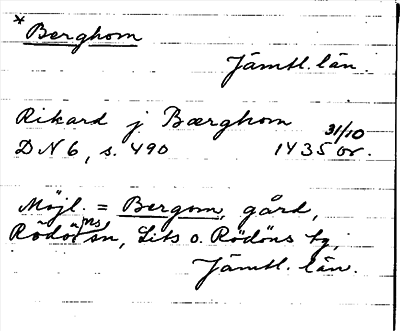 * Berghom
Jämtl. län.
Rikard j Bærghom
DN 6, s. 490 1435 31/10 or.
Möjl. = Bergom, gård,
Rödöns sn, Lits o. Rödöns tg,
Jämtl. län.